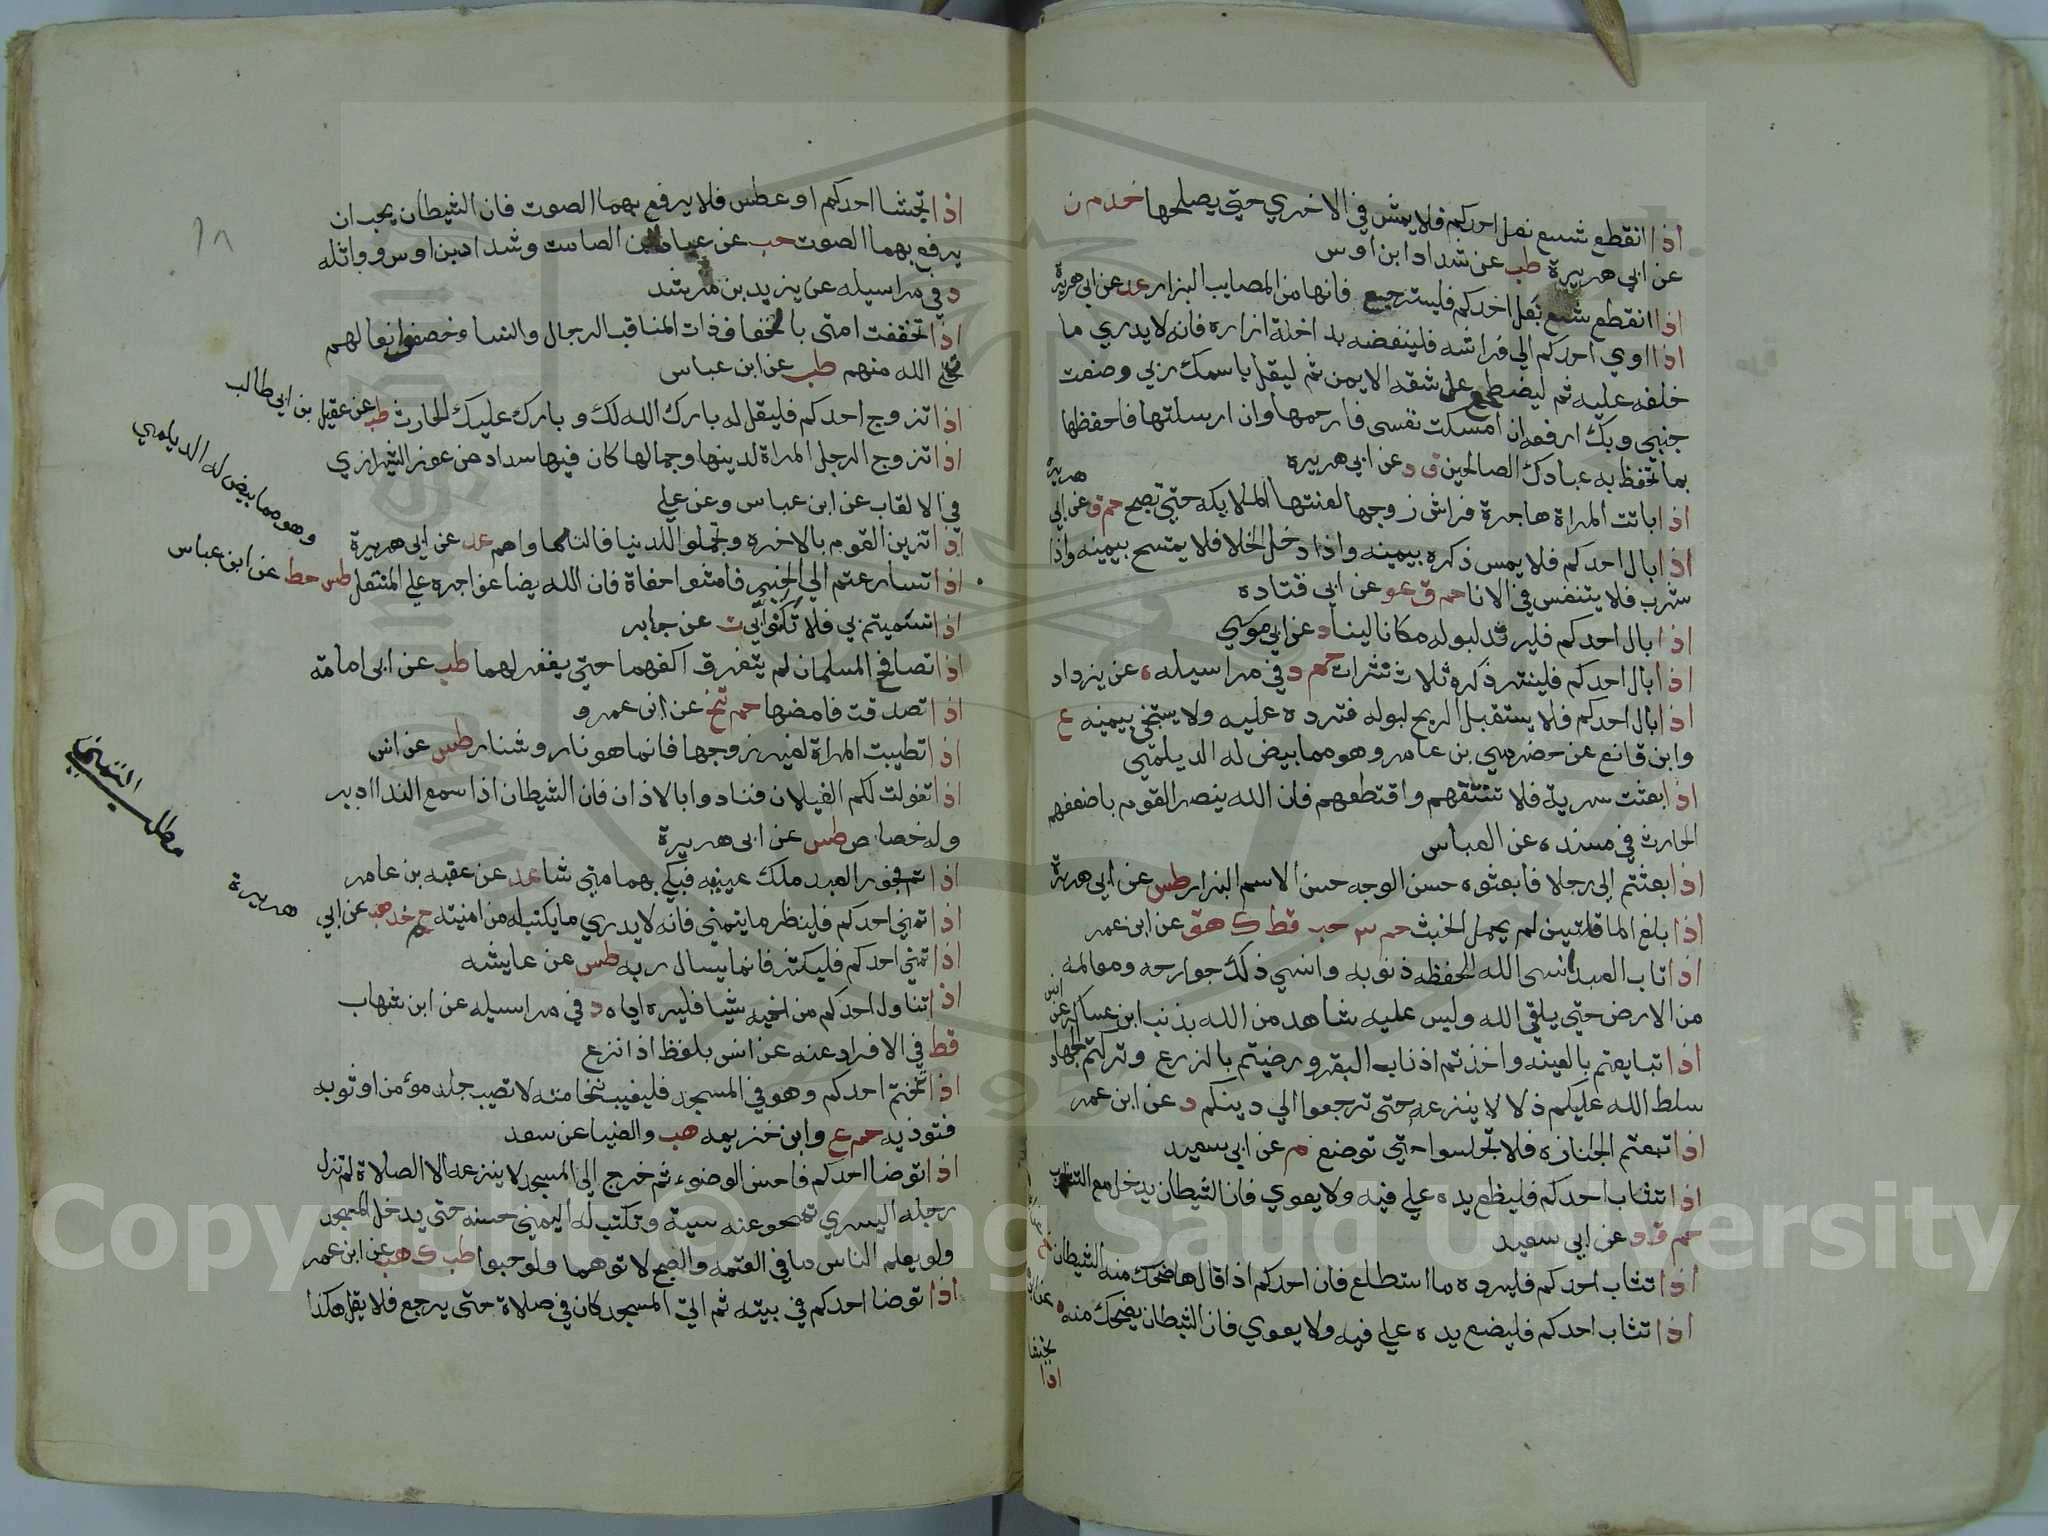 اذا انقطع شسع نعل احدكم فلا يمش في الاخري حتي يصلحها خد م ن
عن ابي هريرة طب عن شداد ابن اوس
اذا انقطع شسع نعل احدكم فليسترجع فانها من المصايب البزار عد عن ابي هريرة
اذا اوي احدكم الي فراشه فلينفضه بداخلة ازاره فانه لا يدري ما
خلفه عليه ثم ليضطجع علي شقه الايمن ثم ليقل باسمك ربي وضعت
جنبي وبك ارفعه ان امسكت نفسي فارحمها وان ارسلتها فاحفظها
بما تحفظ به عبادك الصالحين ق د عن ابي هريره
اذا باتت المراة هاجرة فراش زوجها لعنتها الملايكه حتي تصبح حم ق عن ابي هريرة
اذا بال احدكم فلا يمس ذكره بيمينه واذا دخل الخلا فلا يمتسح بيمينه واذا
شرب فلا يتنفس في الانا حم ق عو عن ابي قتاده
اذا بال احدكم فليرتد لبوله مكانا لينا د عن ابي موسي
اذا بال احدكم فلينتر ذكره ثلاث نترات حم د في مراسيله ه عن يزداد
اذا بال احدكم فلا يستقبل الريح لبوله فترده عليه ولا يستنجي بيمينه ع
وابن قانع عن حضرمي بن عامر وهو مما بيض له الديلمي
اذا بعثت سرية فلا تنتقهم واقتطعهم فان الله ينصر القوم باضعفهم
الحارث في مسنده عن العباس
اذا بعثتم الي رجلا فابعثوه حسن الوجه حسن الاسم البزار طس عن ابي هريرة
اذا بلغ الما قلتين لم يحمل الخبث حم ٣ حب قط ك هق عن ابن عمر
اذا تاب العبد انسي الله الحفظه ذنوبه وانسي ذلك جوارحه ومعالمه
من الارض حتي يلقي الله وليس عليه شاهد من الله بذنب ابن عساكر عن انس
اذا تبايعتم بالعينه واخذتم اذناب البقر ورضيتم بالزرع وتركتم الجهاد
سلط الله عليكم ذلا لا ينزعه حتي ترجعوا الي دينكم د عن ابن عمر
اذا تبعتم الجنازه فلا تجلسوا حتي توضع م عن ابي سعيد
اذا تثاب احدكم فليضع يده علي فيه ولا يعوي فان الشيطان يدخل مع التثاوب
حم ق د عن ابي سعيد
اذا تثاب احدكم فليرده ما استطاع فان احدكم اذا قال ها ضحك منه الشيطان
اذا تثاب احدكم فليضع يده علي فيه ولا يعوي فان الشيطان يضحك منه ه
تجشا
اذا
اذا تجشا احدكم او عطس فلا يرفع بهما الصوت فان الشيطان يحب ان
يرفع بهما الصوت حب عن عبادة بن الصامت وشداد بن اوس وواثله
د في مراسيله عن يزيد بن مرثد
اذا تخففت امتي بالخفاف ذات المناقب الرجال والنسا وخصفوا نعالهم
تخلي الله منهم طب عن ابن عباس
اذا تزوج احدكم فليقل له بارك الله لك وبارك عليك الحارث طب عن عقيل بن ابي طالب
اذا تزوج الرجل المراة لدينها وجمالها كان فيها سداد من عوز الشيرازي
في الالقاب عن ابن عباس وعن علي
اذا تزين القوم بالاخره وتجملوا للدنيا فالنار ماواهم عد عن ابي هريرة
وهو مما بيض له الديلمي
اذا تسارعتم الي الخير فامشوا حفاة فان الله يضاعف اجره علي المنتعل طس خط عن ابن عباس
اذا تسميتم بي فلا تكنوا بي ت عن جابر
اذا تصافح المسلمان لم يتفرق اكفهما حتي يغفر لهما طب عن ابي امامة
اذا تصدقت فامضها حم تخ عن ابن عمرو
اذا تطيبت المراة لغير زوجها فانما هو نار وشنار طس عن انس
اذا تغولت لكم الغيلان فنادوا بالاذان فان الشيطان اذا سمع الندا ادبر
وله خصاص طس عن ابي هريرة
اذا تم فجور العبد ملك عينيه فبكي بهما متي شا عد عن عقبه بن عامر
مطلب التمني
اذا تمني احدكم فلينظر ما يتمني فانه لا يدري ما يكتب له من امنيته حم خد هب عن ابي هريرة
اذا تمني احدكم فليكثر فانما يسال ربه طس عن عايشه
اذا تناول احدكم من اخيه شيا فليره اياه د في مراسيله عن ابن شهاب
قط في الافراد عنه عن انس بلفظ اذا نزع
اذا تنخم احدكم وهو في المسجد فليغيب نخامته لا تصيب جلد مؤمن او ثوبه
فتوذيه حم ع وابن خزيمه هب والضيا عن سعد
اذا توضا احدكم فاحسن الوضوء ثم خرج الي المسجد لا ينزعه الا الصلاة لم تزل
رجله اليسري تمحو عنه سيية وتكتب له اليمني حسنه حتي يدخل المسجد
ولو يعلم الناس ما في العتمه والصبح لاتوهما ولو حبوا طب ك هب عن ابن عمر
اذا توضا احدكم في بيته ثم اتي المسجد كان في صلاة حتي يرجع فلا يقل هكذا
Copyright © King Saud University